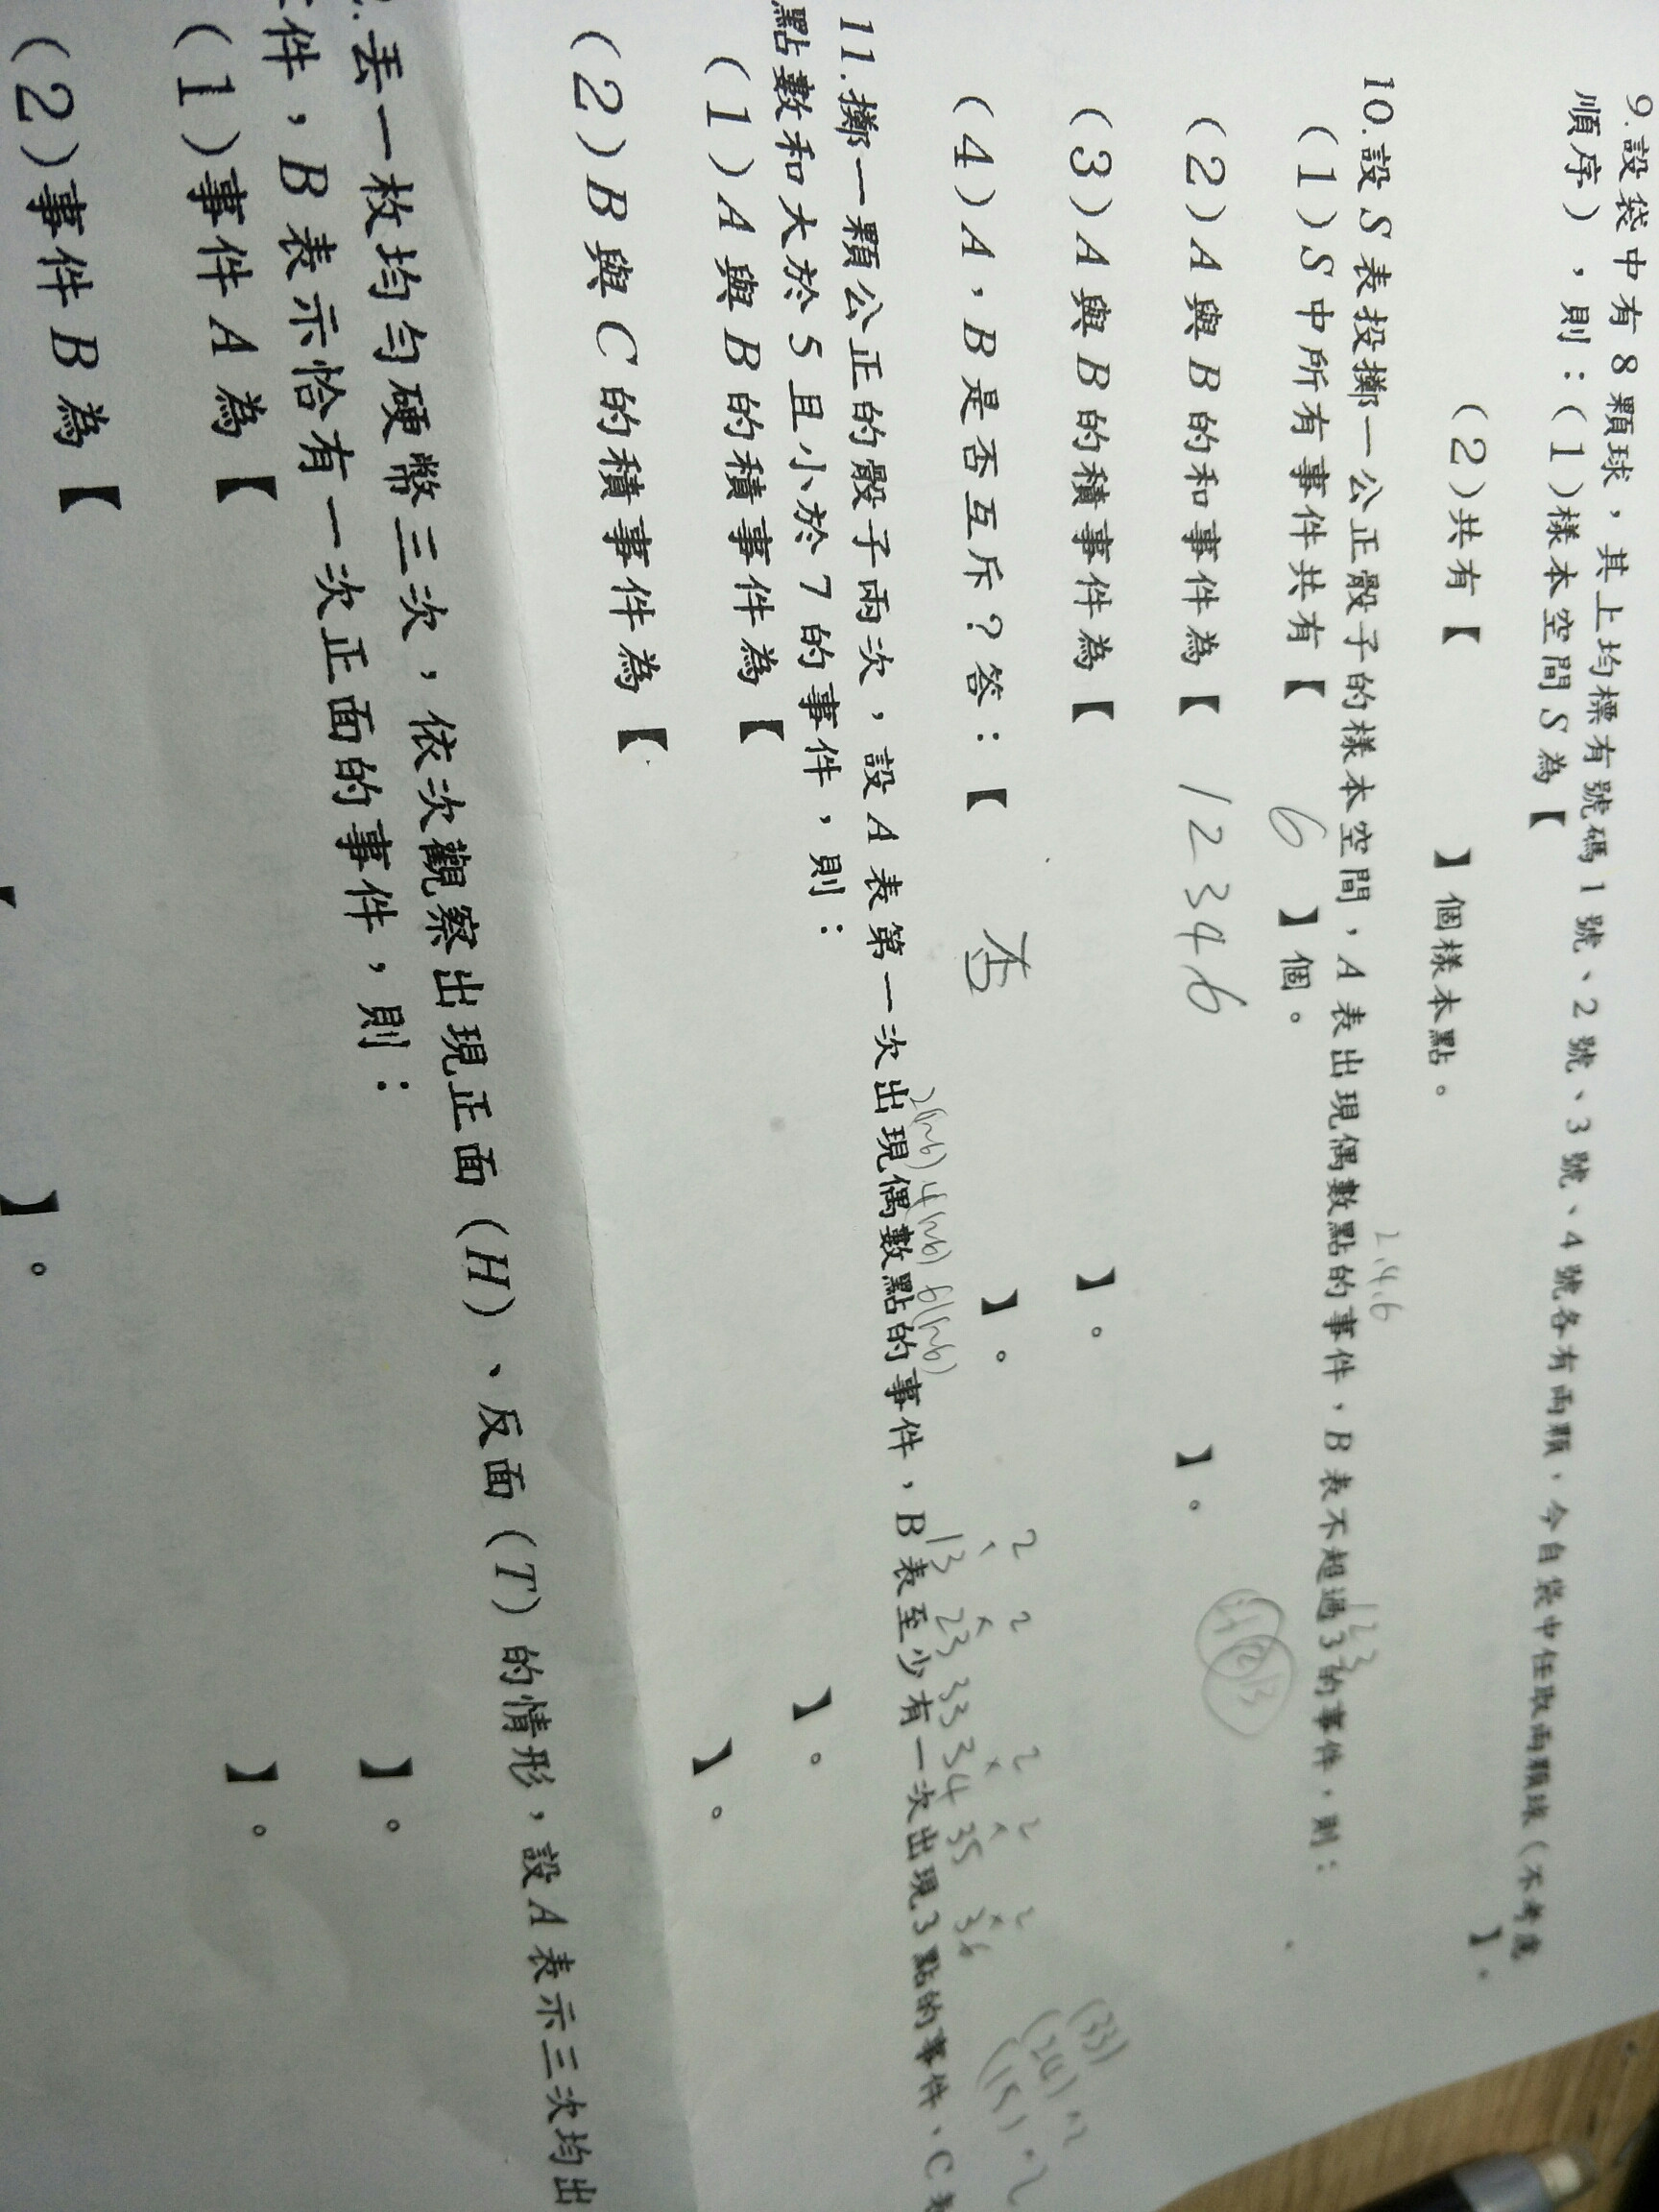 9.設袋中有8顆球，其上均標有號碼1號、2號、3號、4號各有兩顆，今自袋中任取兩顆球（不考慮
順序），則：(1)樣本空間S為【 】。
(2)共有【 】個樣本點。
2.4.6
1 2 3
10.設S表投擲一公正骰子的樣本空間，A表出現偶數點的事件，B表不超過3的事件，則：
(1)S中所有事件共有【 6 】個。
(2)A與B的和事件為【 1 2 3 4 6 】。
(3)A與B的積事件為【 】。
(4)A，B是否互斥？答：【 否 】。
(33)
2 2 2 2 2
13 23 33 34 35 36
11.擲一顆公正的骰子兩次，設A表第一次出現偶數點的事件，B表至少有一次出現3點的事件、C表
點數和大於5且小於7的事件，則：
(1)A與B的積事件為【 】。
(2)B與C的積事件為【 】。
丟一枚均勻硬幣三次，依次觀察出現正面（H）、反面（T）的情形，設A表示三次均出
件，B表示恰有一次正面的事件，則：
(1)事件A為【 】。
(2)事件B為【 】。
【 】。